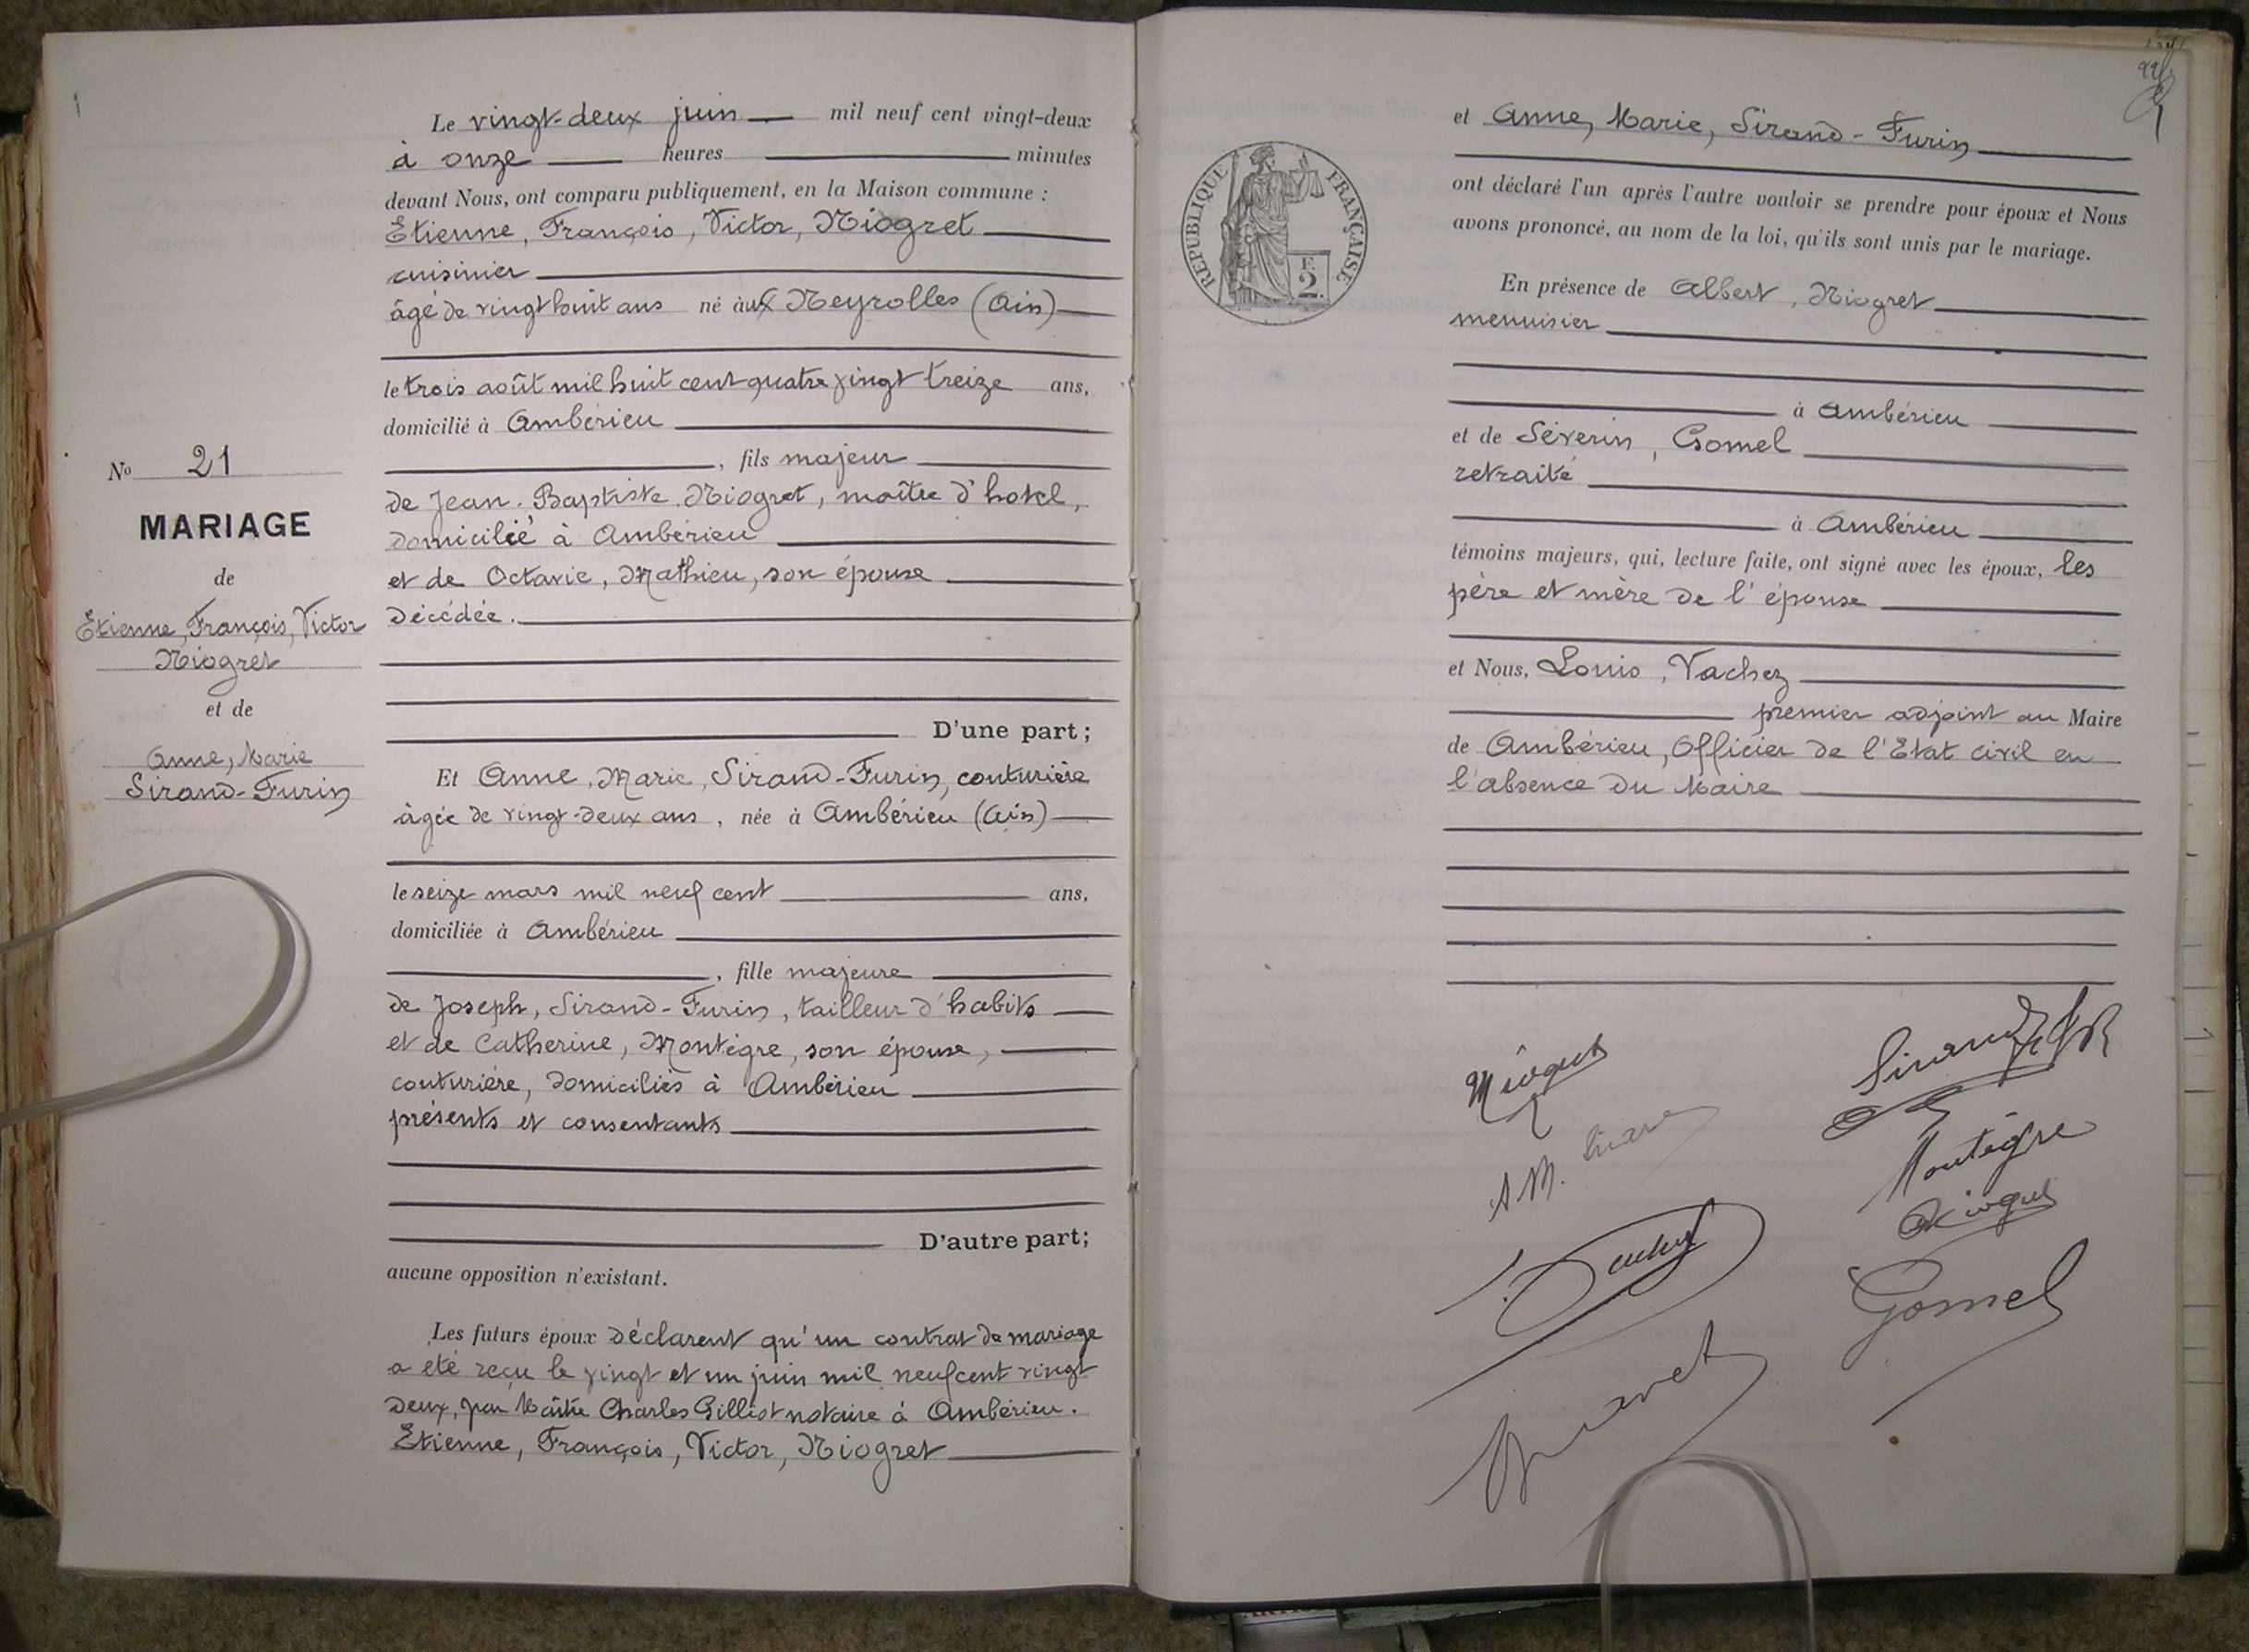 Le vingt-deux juin mil neuf cent vingt-deux
à onze heures minutes
devant Nous, ont comparu publiquement, en la Maison commune :
Etienne, François, Victor, Niogret
cuisinier
âgé de vingt huit ans né aux Neyrolles (Ain)
le trois août mil huit cent quatre vingt treize ans,
domicilié à Ambérieu
, fils majeur
de Jean-Baptiste Niogret, maître d'hotel,
domicilié à Ambérieu
et de Octavie, Mathieu, son épouse
décédée.
D'une part ;
Et Anne, Marie, Sirand-Furin, couturière
âgée de vingt-deux ans, née à Ambérieu (Ain)
le seize mars mil neuf cent ans,
domiciliée à Ambérieu
, fille majeure
de Joseph, Sirand-Furin, tailleur d'habits
et de Catherine, Montègre, son épouse,
couturière, domiciliés à Ambérieu
présents et consentants
D'autre part ;
aucune opposition n'existant.
Les futurs époux déclarent qu'un contrat de mariage
a été reçu le vingt et un juin mil neuf cent vingt
deux, par Maître Charles Gilliot notaire à Ambérieu.
Etienne, François, Victor, Niogret
No 21
MARIAGE
de
Etienne, François, Victor
Niogret
et de
Anne, Marie
Sirand-Furin
et Anne, Marie, Sirand-Furin
ont déclaré l'un après l'autre vouloir se prendre pour époux et Nous
avons prononcé, au nom de la loi, qu'ils sont unis par le mariage.
En présence de Albert, Niogret
menuisier
à Ambérieu
et de Séverin, Gomel
retraité
à Ambérieu
témoins majeurs, qui, lecture faite, ont signé avec les époux, les
père et mère de l'épouse
et Nous, Louis, Vachez
premier adjoint au Maire
de Ambérieu, Officier de l'Etat civil en
l'absence du Maire
RÉPUBLIQUE FRANÇAISE
F.
2.
Niogret
Sirand
A M. Sirand
Montègre
Niogret
Gomel